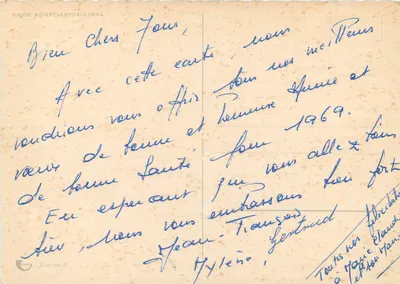 NACH KÜNSTLER-ORIGINAL
Bien chers Tous,
Avec cette carte nous
voudrions vous offrir tous nos meilleurs
vœux de bonne et heureuse Année et
de bonne Santé, pour 1969.
En espérant que vous allez tous
bien, nous vous embrassons bien fort
Jean-François
Mylène, Gertrud
Toutes nos félicitations
à Marie Claude
et son Mari